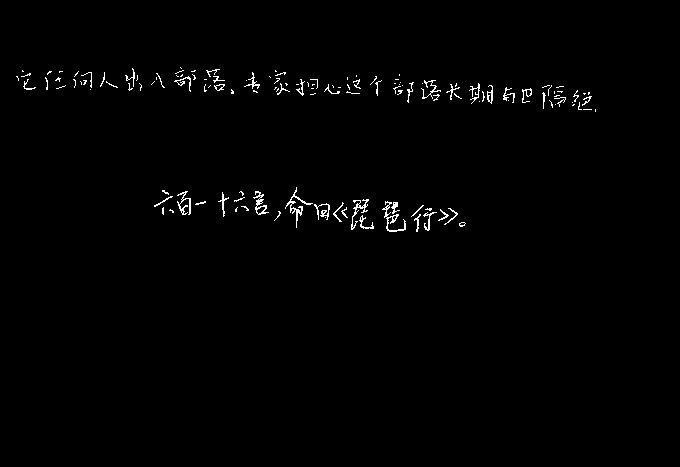 它任何人出入部落,专家担心这个部落长期与巴隔绝.
六百一十六言,命曰《琵琶行》。